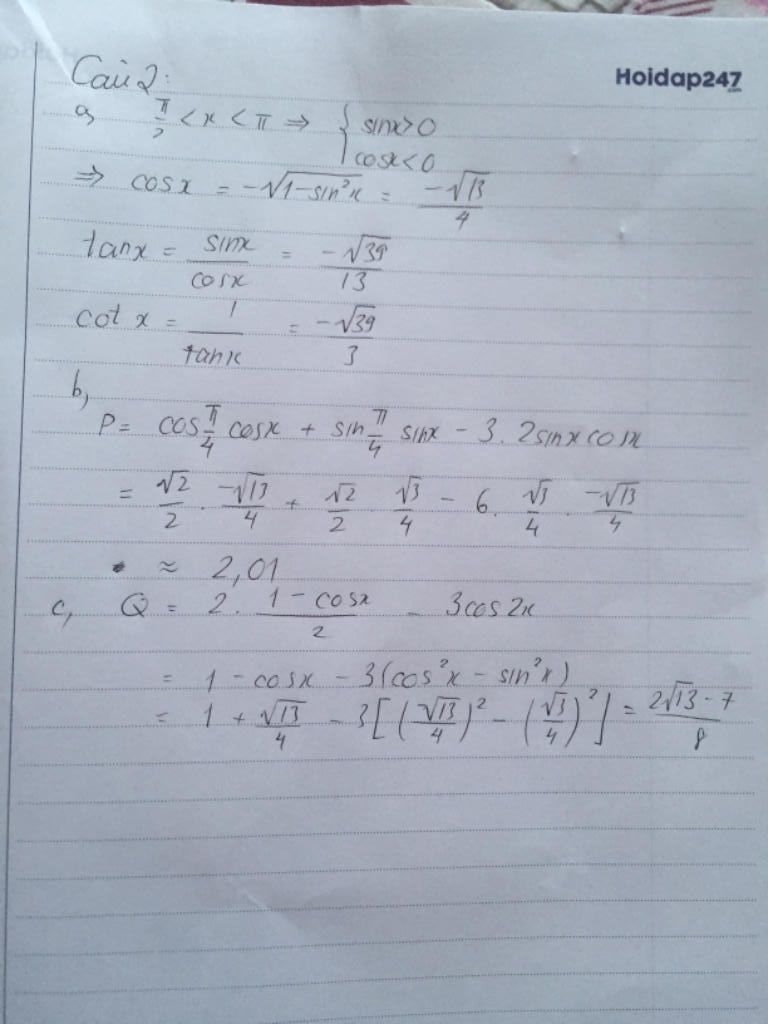 Hoidap247
.com
Câu 2:
a, π/2 < x < π ⇒ { sinx>0
cosx<0
⇒ cosx = -√(1-sin²x) = -√13/4
tanx = sinx/cosx = -√39/13
cot x = 1/tanx = -√39/3
b,
P = cos π/4 cosx + sin π/4 sinx - 3. 2sinx cosx
= √2/2 . -√13/4 + √2/2 √3/4 - 6. √3/4 . -√13/4
≈ 2,01
c, Q = 2. (1-cosx)/2 - 3cos2x
= 1 - cosx - 3(cos²x - sin²x)
= 1 + √13/4 - 3[(√13/4)² - (√3/4)²] = (2√13 - 7)/8